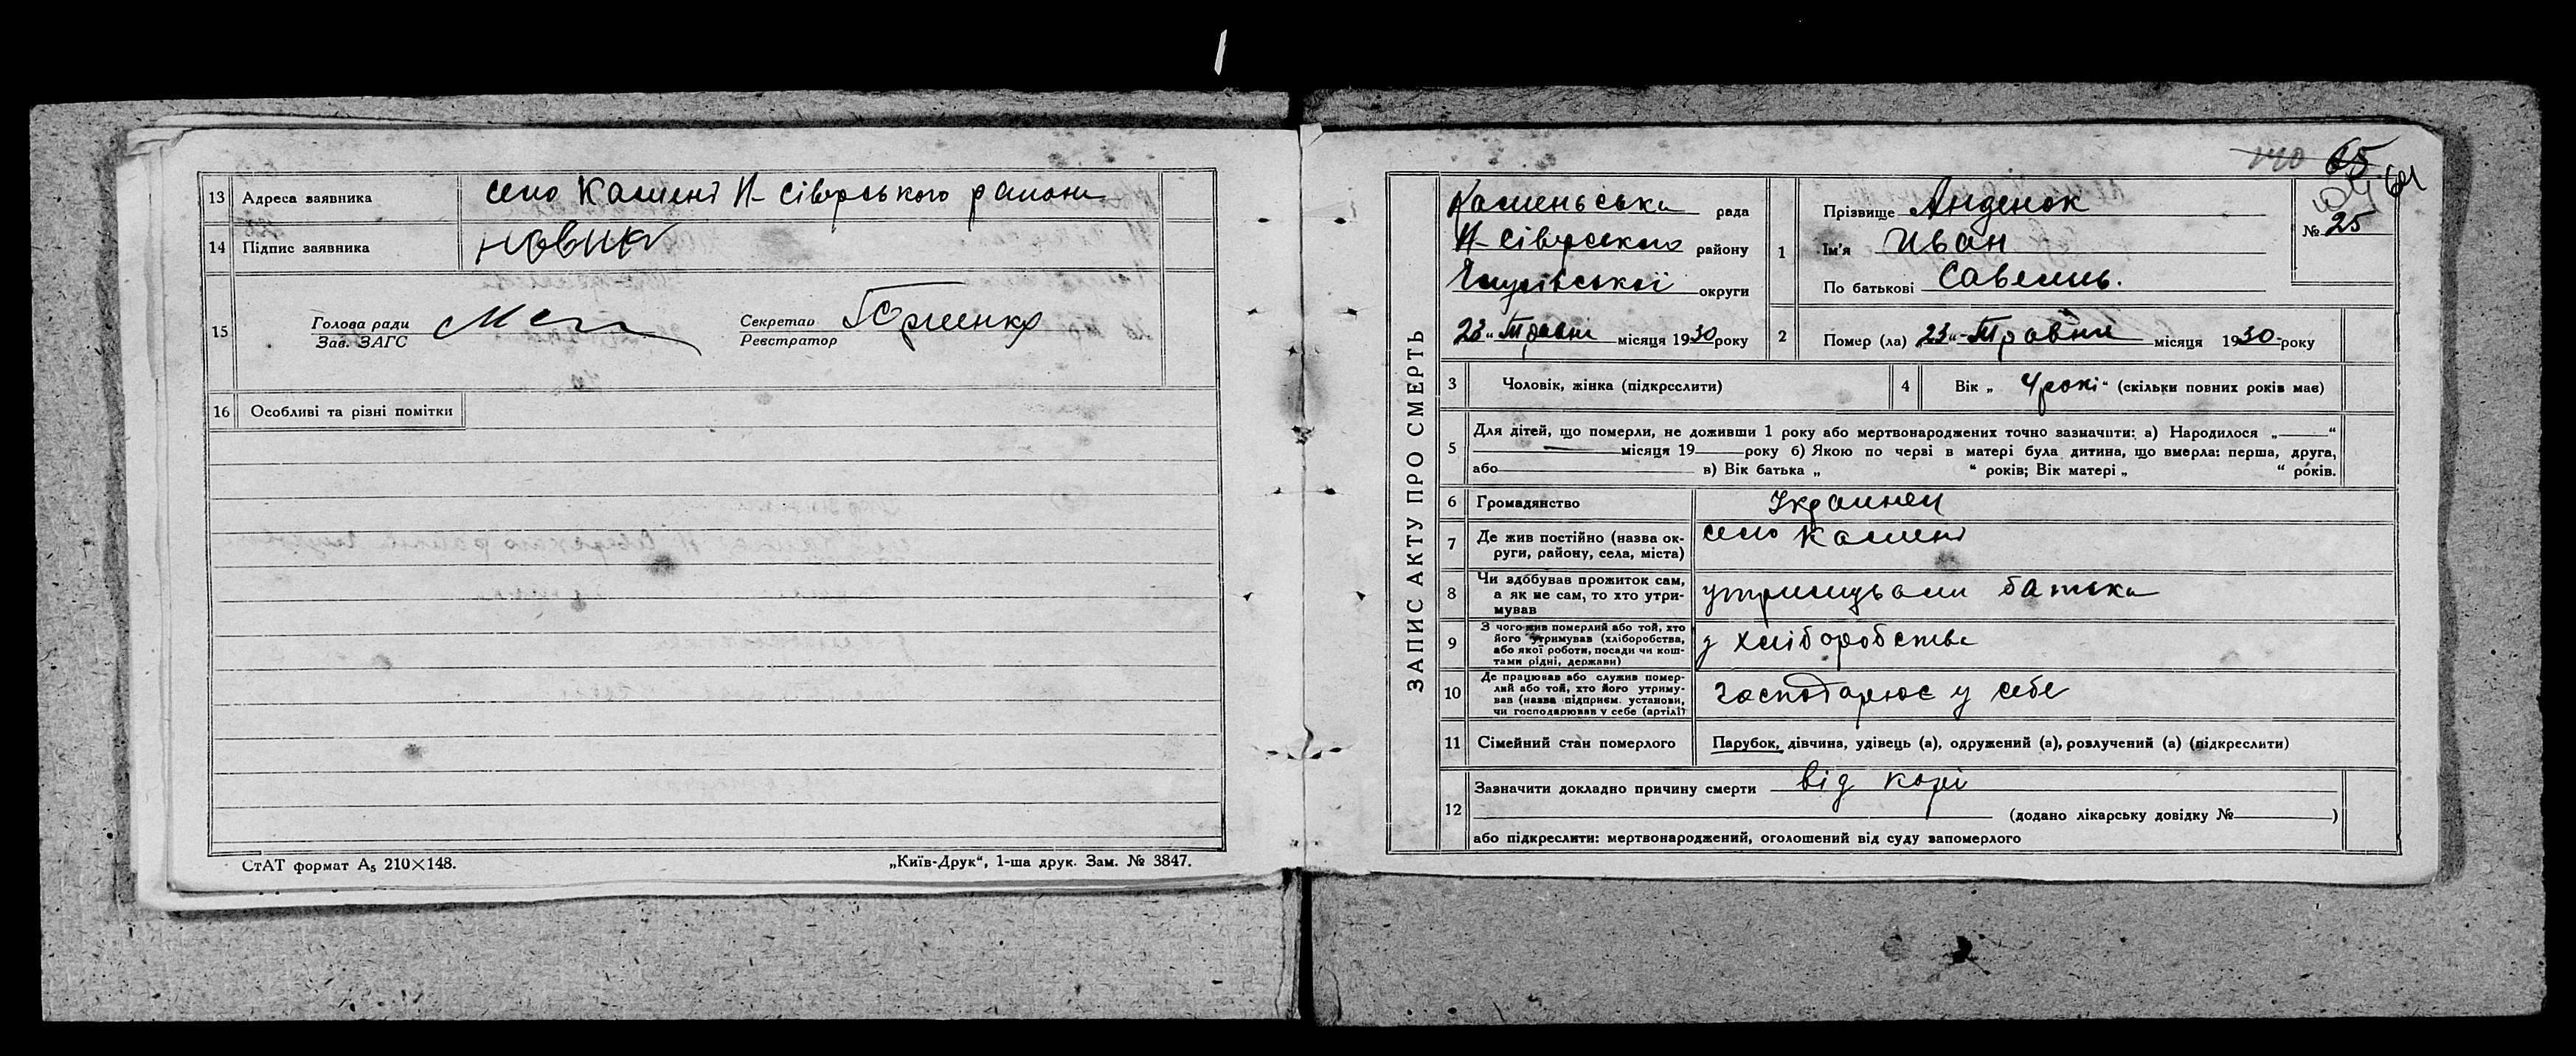 13 Адреса заявника село Камені Н-Сіверського району
14 Підпис заявника Новик
15 Голова ради
Зав. ЗАГС
Секретар
Реєстратор
16 Особливі та різні помітки
СтАТ формат А5 210×148.
„Київ-Друк“, 1-ша друк. Зам. № 3847.
140 65
64
№ 25
ЗАПИС АКТУ ПРО СМЕРТЬ
Каменьська рада
Н-Сіверського району
округи
23 „ Травня місяця 1930 року
1 Прізвище Анденок
Ім'я Иван
По батькові Савелиь.
2 Помер (ла) 23 „ Травня місяця 1930 року
3 Чоловік, жінка (підкреслити)
4 Вік „ 4 рокі “ (скільки повних років має)
5 Для дітей, що померли, не доживши 1 року або мертвонароджених точно зазначити: а) Народилося „ “
місяця 19 року б) Якою по черзі в матері була дитина, що вмерла: перша, друга,
або в) Вік батька „ “ років; Вік матері „ “ років.
6 Громадянство Украинец
7 Де жив постійно (назва ок-
руги, району, села, міста) село Камені
8 Чи здобував прожиток сам,
а як не сам, то хто утри-
мував утримували батька
9 З чого жив померлий або той, хто
його утримував (хліборобства,
або якої роботи, посади чи кош-
тами рідні, держави) з хліборобства
10 Де працював або служив помер-
лий або той, хто його утриму-
вав (назва підприєм. установи,
чи господарював у себе (артілі) господарює у себе
11 Сімейний стан померлого Парубок, дівчина, удівець (а), одружений (а), розлучений (а) (підкреслити)
12 Зазначити докладно причину смерти від корі
(додано лікарську довідку № )
або підкреслити: мертвонароджений, оголошений від суду запомерлого